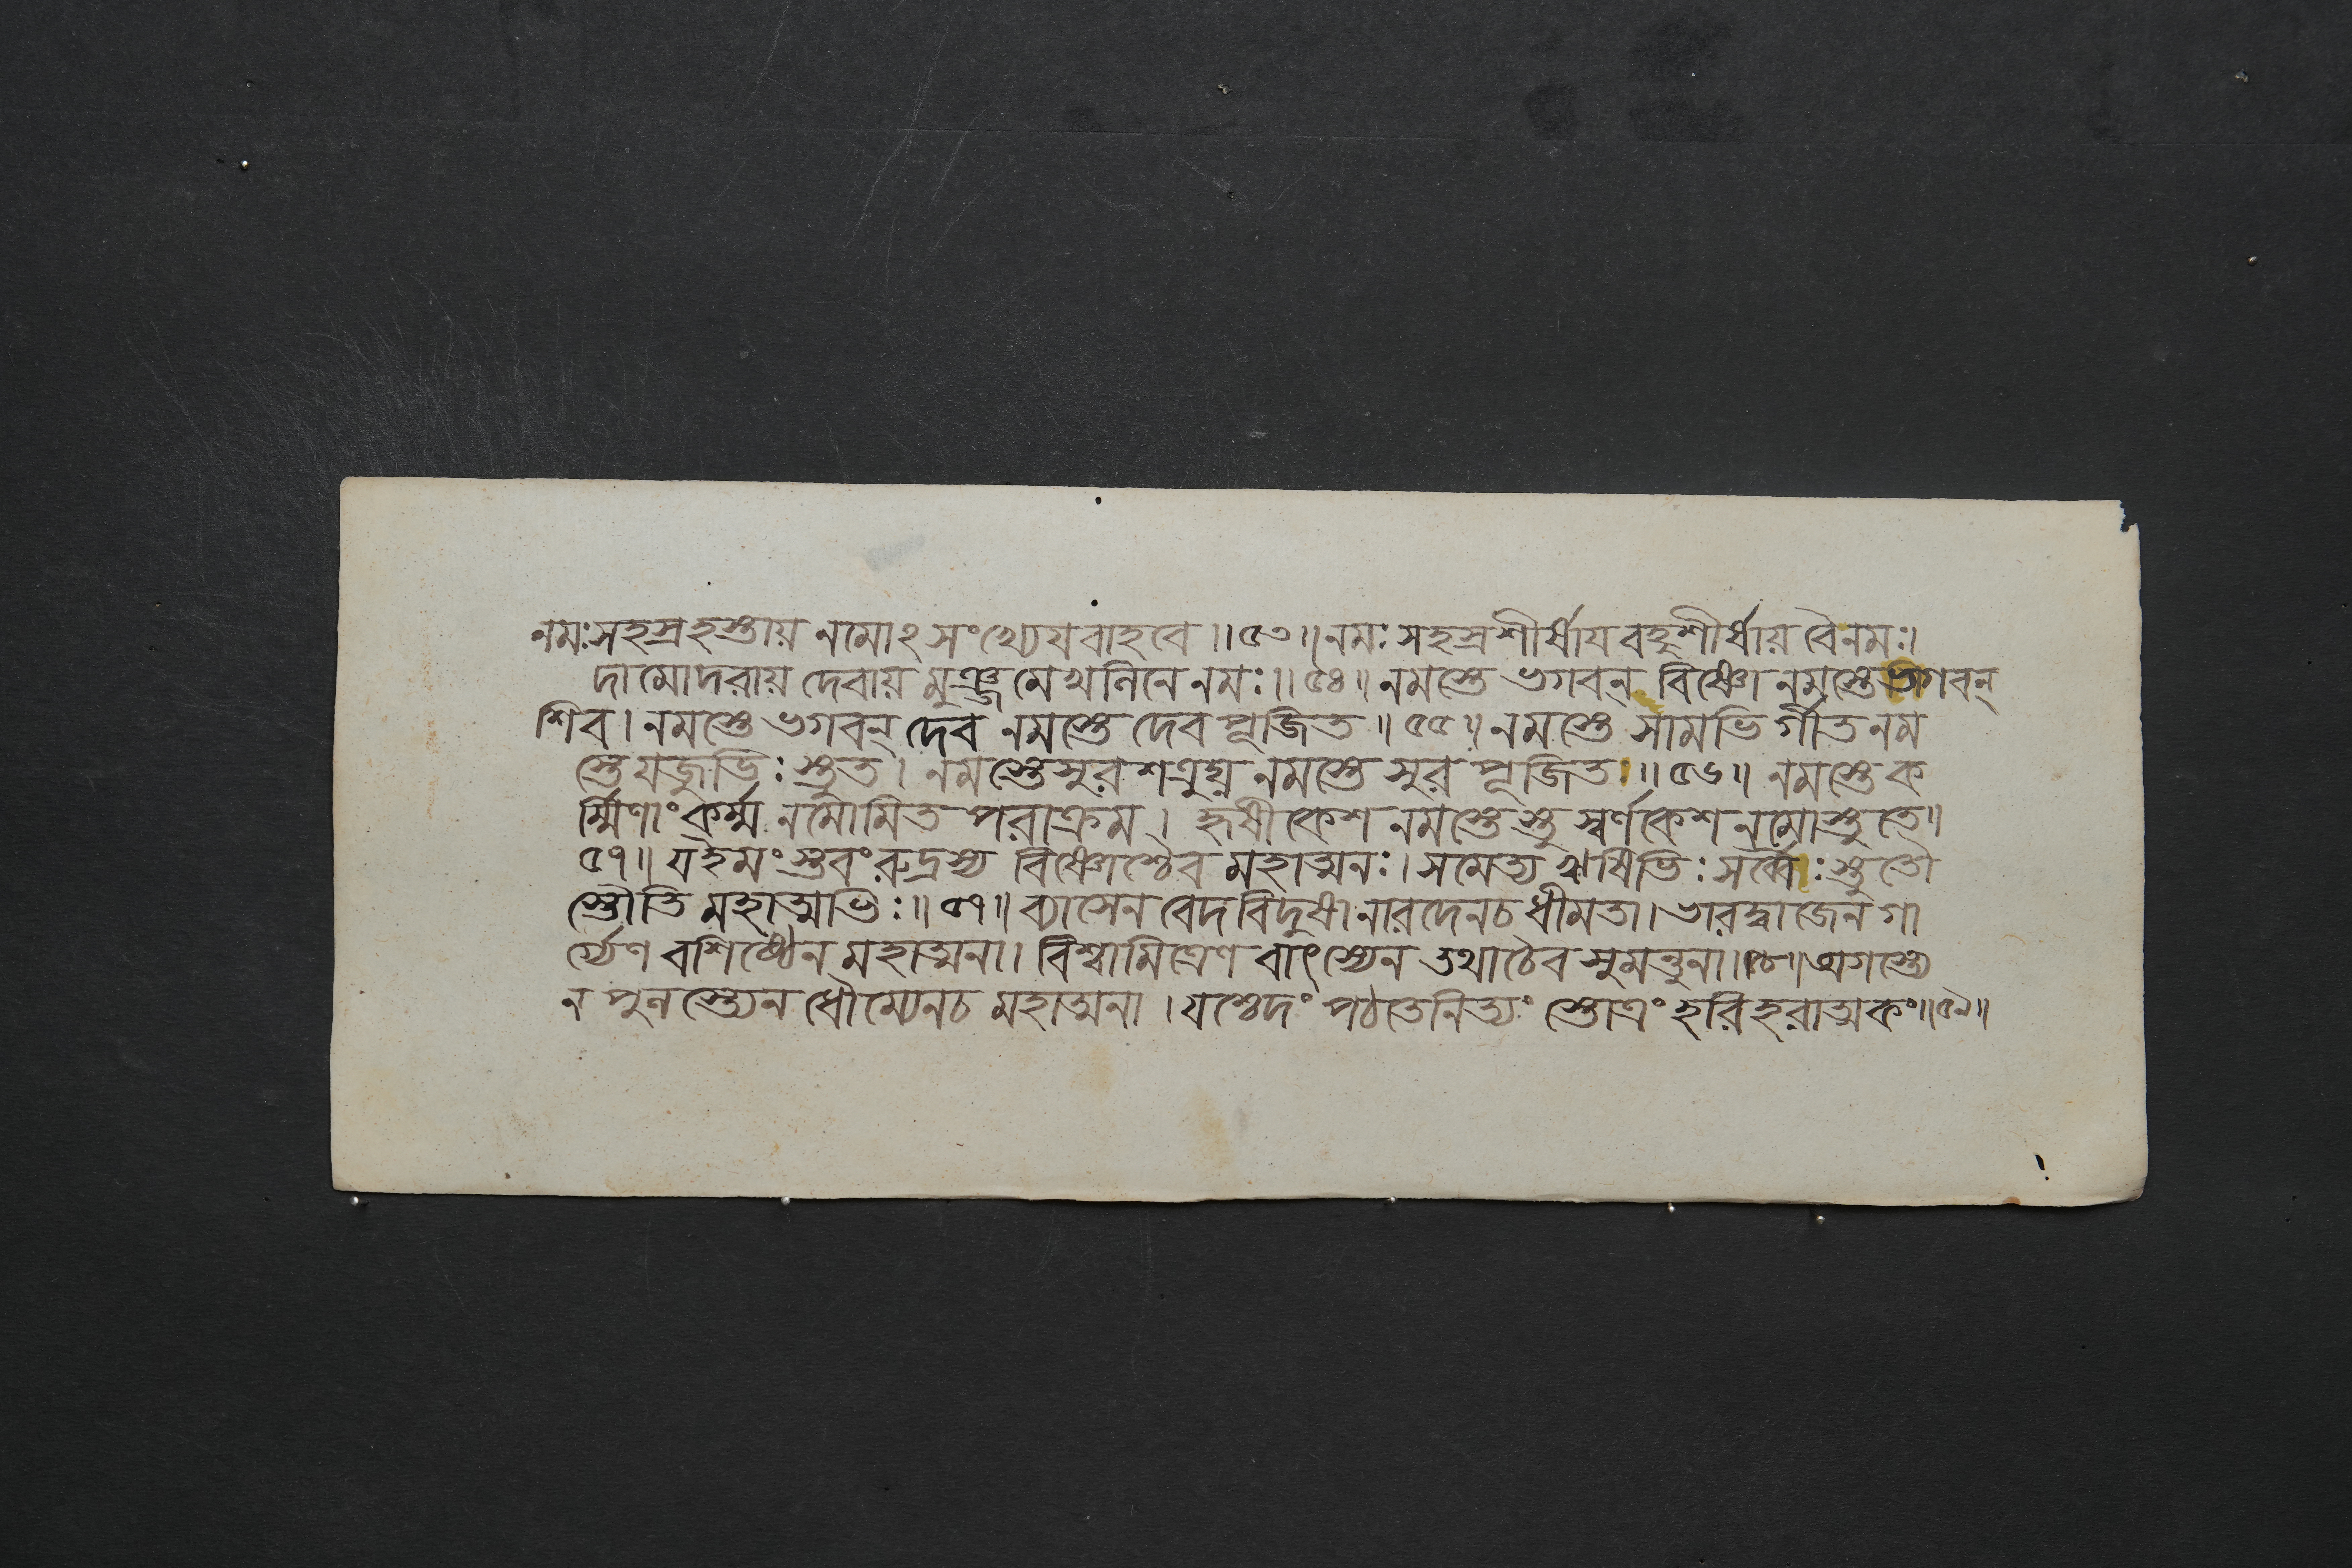 নমঃসহস্রহস্তায় নমোঽসংখ্যেযবাহবে॥৫৩॥নমঃ সহস্রশীর্ষাযবহুশীর্ষায় বৈনমঃ।
দামোদরায় দেবায় মুঞ্জমেখলিনে নমঃ॥৫৪॥ নমস্তে ভগবন্ বিষ্ণো নমস্তে ভগবন্
শিব। নমস্তে ভগবন্ দেব নমস্তে দেব পূজিত॥৫৫॥ নমস্তে সামভি র্গীত নম
স্তে যজুর্ভিঃ স্তুত। নমস্তে সুর শত্রুঘ্ন নমস্তে সুর পূজিত॥৫৬॥ নমস্তে ক
র্ম্মিণাং কর্ম্ম নমোমিত পরাক্রম। হৃষীকেশ নমস্তেস্তু স্বর্ণকেশ নমোস্তুতে॥
৫৭॥ যইমং স্তুবং রুদ্রস্য বিষ্ণোশ্চৈব মহাত্মনঃ। সমেত্য ঋষিভিঃ সর্ব্বৈঃ স্তুতৌ
স্তৌতি মহাত্মভিঃ॥৫৭॥ ব্যাসেন বেদবিদুষা নারদেনচ ধীমতা। ভারদ্বাজেন গা
র্গ্যেণ বশিষ্ঠেন মহাত্মনা। বিশ্বামিত্রেণ বাৎস্যেন তথাচৈব সুমন্তুনা॥৫৮॥ অগস্ত্যে
ন পুলস্ত্যেন ধৌম্যেনচ মহাত্মনা। যশ্চেদং পঠতেনিত্যং স্তোত্রং হরিহরাত্মকং॥৫৯॥